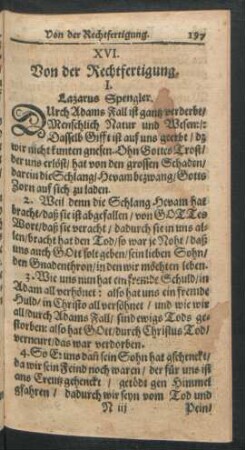 Von der Rechtfertigung. 197
XVI.
Von der Rechtfertigung.
I.
Lazarus Spengler.
DUrch Adams Fall ist gantz verderbt/
Menschlich Natur und Wesen/:/:
Dasselb Gifft ist auf uns geerbt / dz
wir nicht kunten gnesen Ohn Gottes Trost/
der uns erlöst/ hat von den grossen Schaden/
darein die Schlang/ Hevam bezwang/ Gotts
Zorn auf sich zu laden.
2. Weil denn die Schlang Hevam hat
bracht/ daß sie ist abgefallen / von GOTTes
Wort/ daß sie veracht / dadurch sie in uns al-
len/ bracht hat den Tod/ so war je Noht / daß
uns auch GOtt solt geben/ sein lieben Sohn/
den Gnadenthron/ in den wir möchten leben.
3. Wie uns nun hat ein fremde Schuld/ in
Adam all verhönet: also hat uns ein fremde
Huld/ in Christo all versöhnet / und wie wir
all/ durch Adams Fall/ sind ewigs Tods ge-
storben: also hat GOtt/ durch Christus Tod/
verneurt/ das war verdorben.
4. So Er uns dañ sein Sohn hat gschenckt/
da wir sein Feind noch waren / der für uns ist
ans Creutz gehenckt / getödt gen Himmel
gfahren / dadurch wir seyn vom Tod und
N iij Pein/